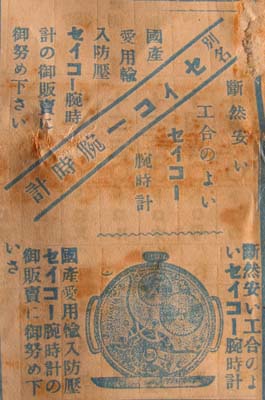 断然安い
工合のよい
セイコー
腕時計
別名
セイコー腕時計
國産
愛用輸
入防壓
セイコー腕時
計の御販賣に
御努め下さい
断然安い工合のよ
いセイコー腕時計
國産愛用輸入防壓
セイコー腕時計の
御販賣に御努め下
いさ